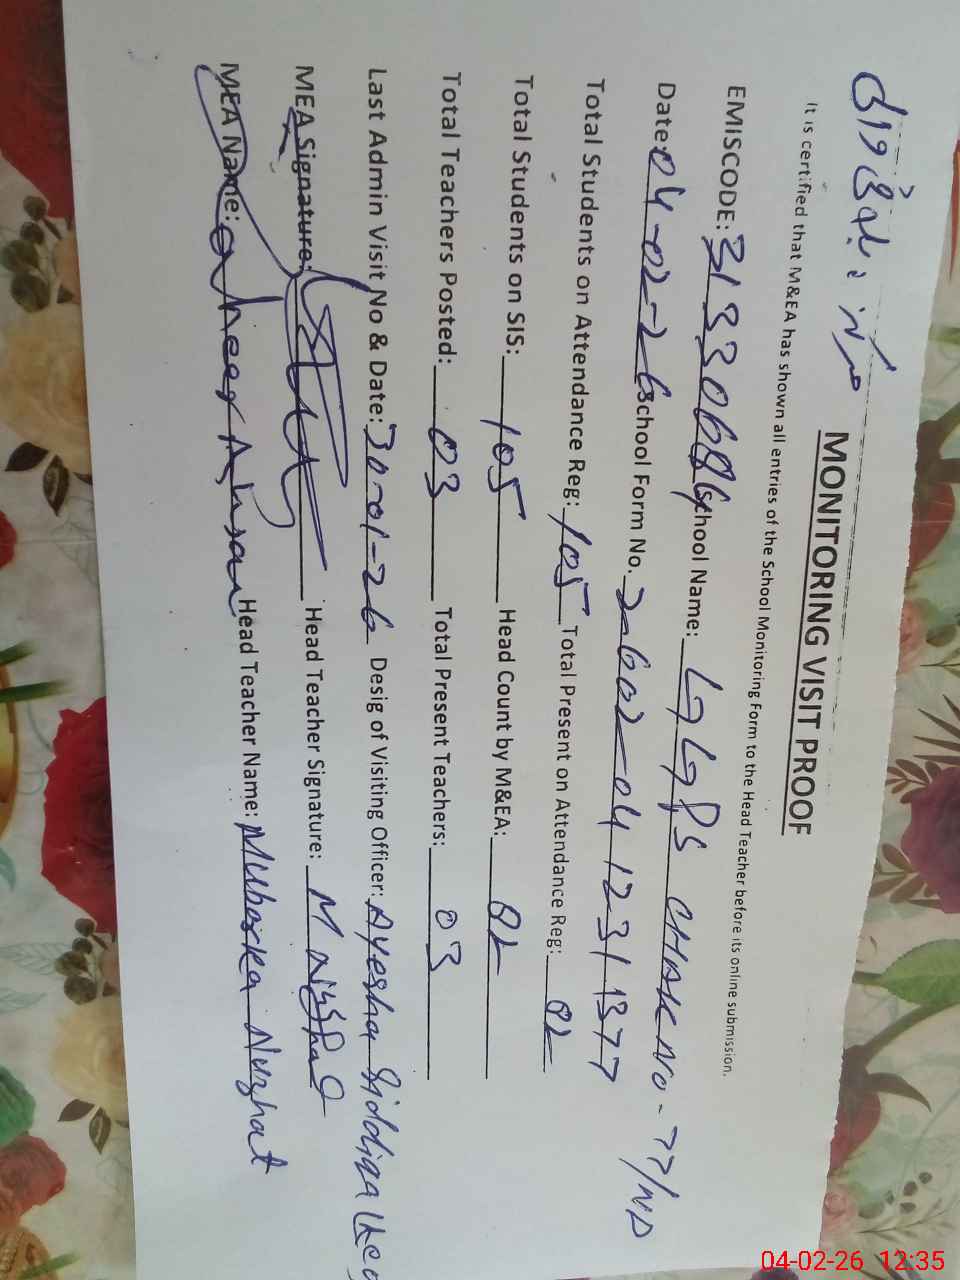 MONITORING VISIT PROOF
It is certified that M&EA has shown all entries of the School Monitoring Form to the Head Teacher before its online submission.
EMISCODE: 31330686 School Name: GGPS CHAK NO-77/NP
Date: 04-02-26 School Form No. 2602-04 1231377
Total Students on Attendance Reg: 105 Total Present on Attendance Reg:
Total Students on SIS: 105 Head Count by M&EA:
Total Teachers Posted: 03 Total Present Teachers: 03
Last Admin Visit No & Date: 30-01-26 Desig of Visiting Officer: Ayesha Siddiqa
MEA Signature: Head Teacher Signature:
MEA Name: Ahsan Head Teacher Name: Nuzhat
04-02-26 12:35